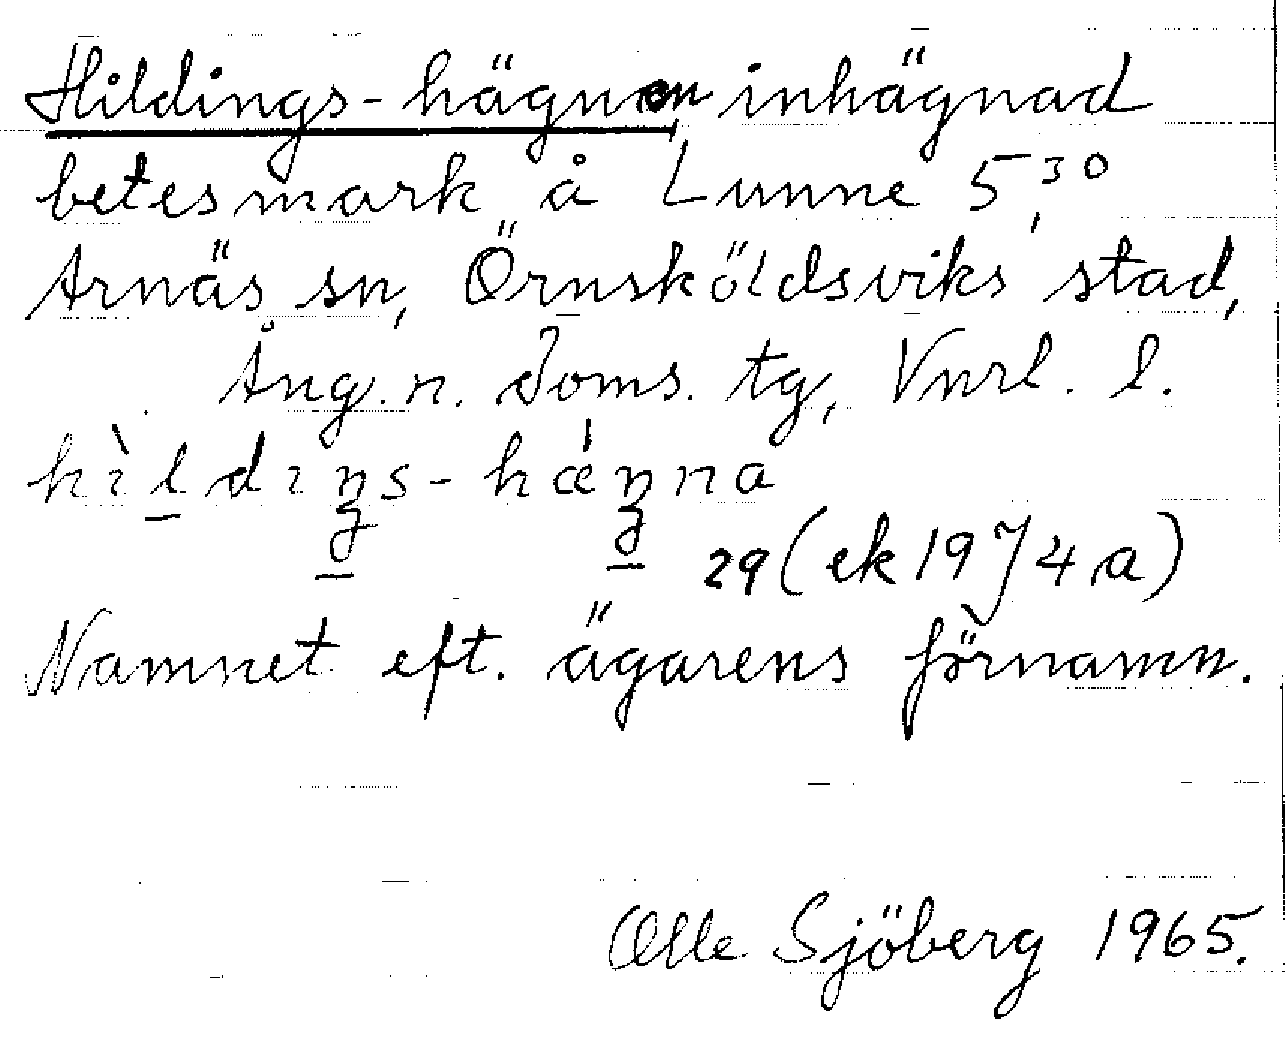 Hildings-hägnen, inhägnad
betesmark å Lunne 5,30
Arnäs sn, Örnsköldsviks stad,
Ång.n. Doms. tg, Vnrl. l.
hìldıŋs-hǽŋna
29 (ek 1974 a)
Namnet eft. ägarens förnamn.
Olle Sjöberg 1965.